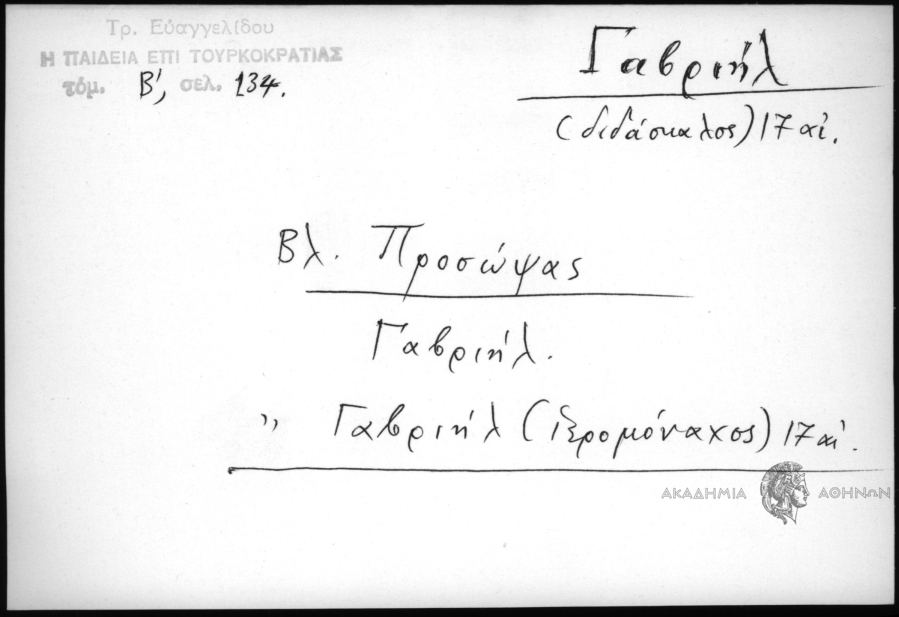 Τρ. Εὐαγγελίδου
Η ΠΑΙΔΕΙΑ ΕΠΙ ΤΟΥΡΚΟΚΡΑΤΙΑΣ
τόμ. Β', σελ. 134.
Γαβριήλ
(διδάσκαλος) 17 αἰ.
Βλ. Προσώψας
Γαβριήλ.
" Γαβριήλ (ἱερομόναχος) 17 αἰ.
ΑΚΑΔΗΜΙΑ ΑΘΗΝΩΝ